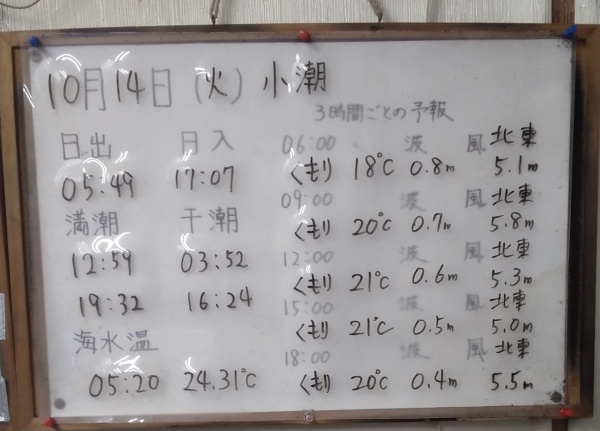 10月14日(火)小潮
3時間ごとの予報
日出 日入
05:49 17:07
満潮 干潮
12:59 03:52
19:32 16:24
海水温
05:20 24.31℃
06:00 波 風 北東
くもり 18℃ 0.8m 5.1m
09:00 波 風 北東
くもり 20℃ 0.7m 5.8m
12:00 波 風 北東
くもり 21℃ 0.6m 5.3m
15:00 波 風 北東
くもり 21℃ 0.5m 5.0m
18:00 波 風 北東
くもり 20℃ 0.4m 5.5m